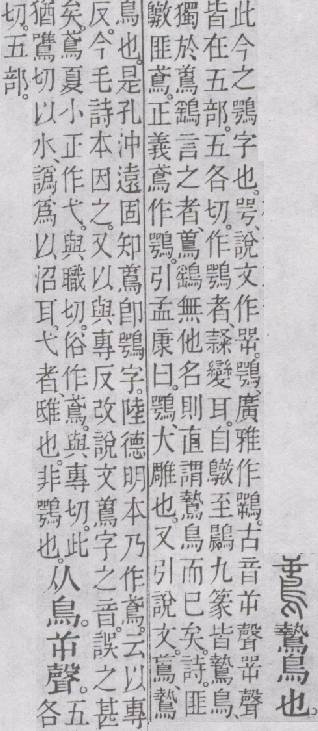 鷙鳥也。
此今之鶚字也。咢、說文作㖾。鶚、廣雅作。古音屰聲㖾聲
皆在五部。五各切。作鶚者、隸變耳。自鷻至鷳九篆皆鷙鳥、
獨於𪀝鴟言之者、𪀝鴟無他名則直謂鷙鳥而已矣。詩。匪
鷻匪鳶。正義鳶作鶚。引孟康曰。鶚、大雕也。又引說文。𪀝、鷙
鳥也。是孔沖遠固知𪀝卽鶚字。陸德明本乃作鳶。云以專
反。今毛詩本因之。又以與專反改說文𪀝字之音。誤之甚
矣。鳶夏小正作弋。與職切。俗作鳶。與專切。此
猶鷕切以水、譌爲以沼耳。弋者、隿也。非鶚也。
从鳥。屰聲。
五各
切。五部。